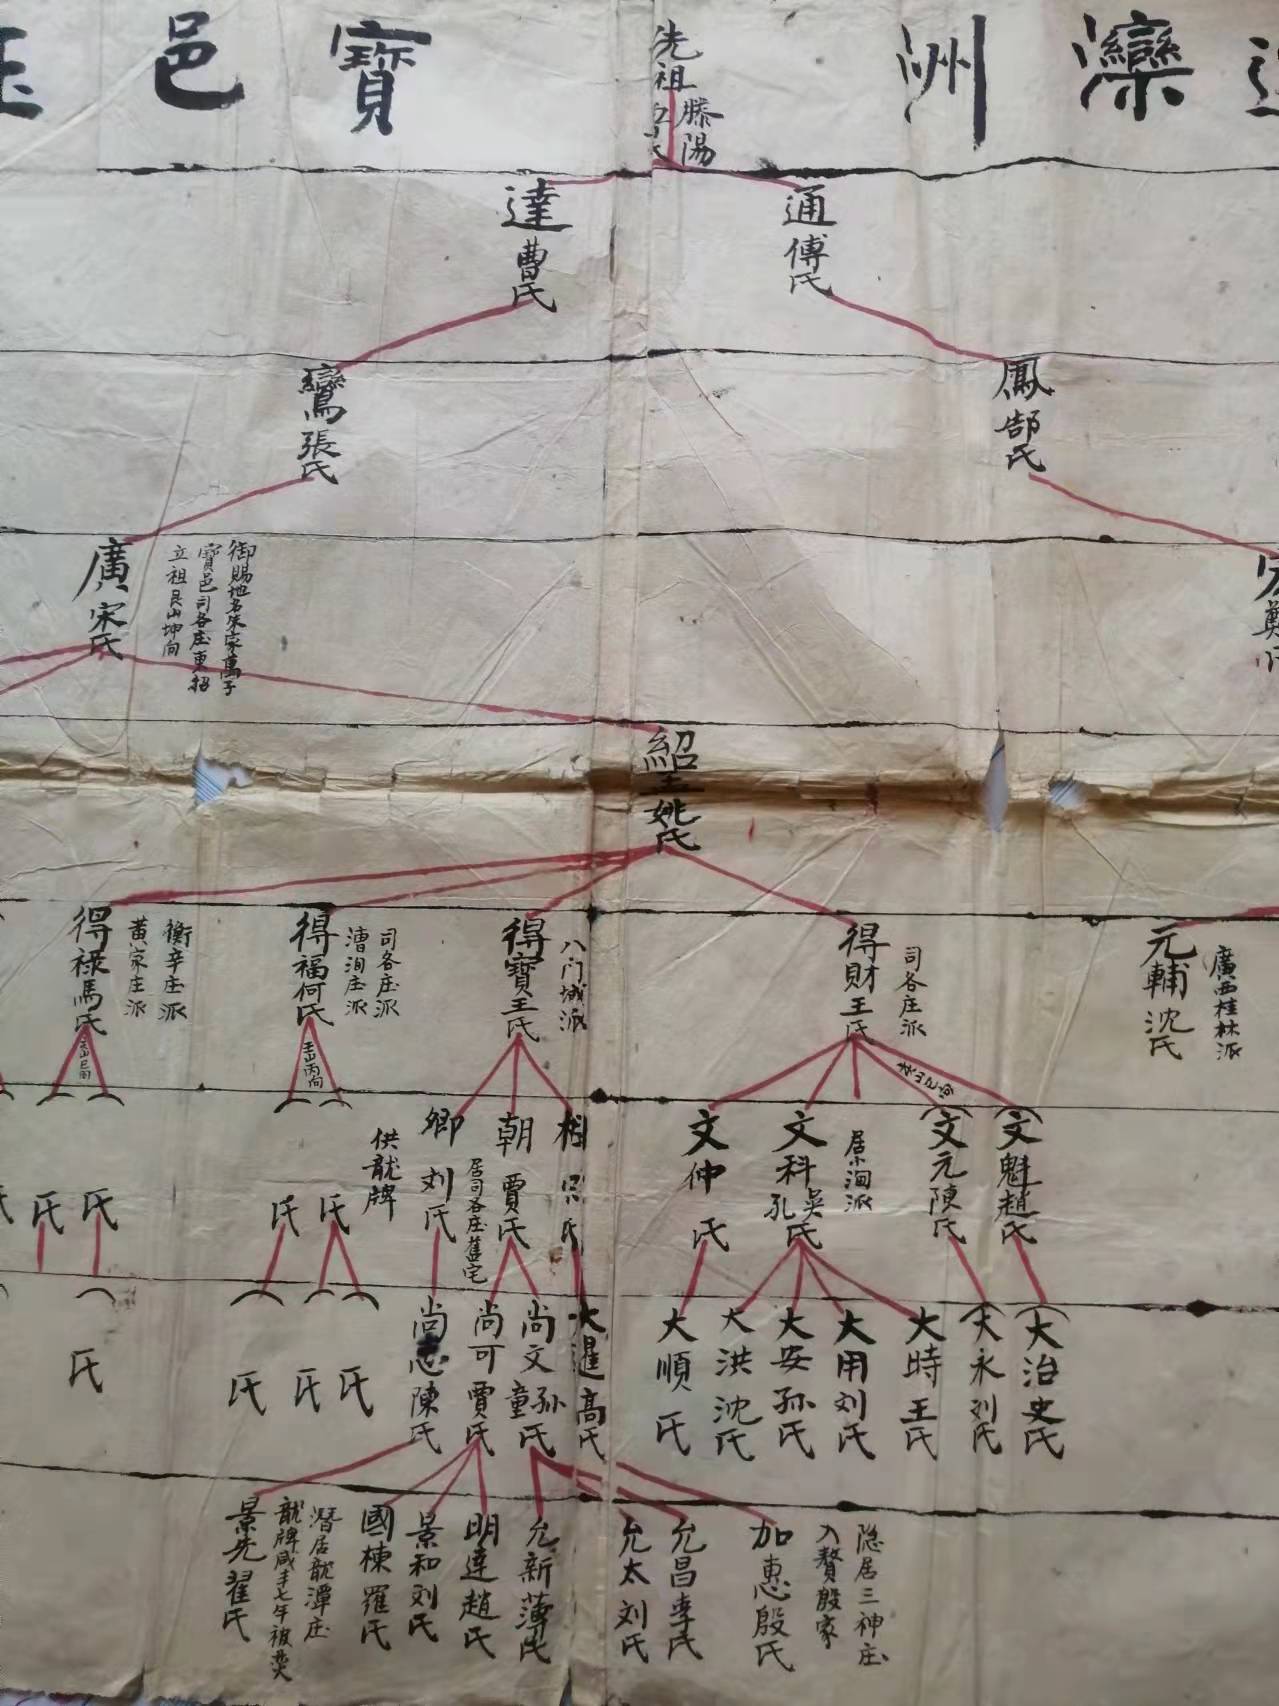 灤洲
寶邑
先祖
滕陽
通傅氏
達曹氏
鳳郜氏
鸞張氏
鄭
廣宋氏
御賜地名朱家萬子
寶邑司各庄東招
立祖艮山坤向
紹 姚氏
元輔沈氏
廣西桂林派
得財王氏
司各庄派
得寶王氏
八门城派
得福何氏
司各庄派
漕洵庄派
得禄馬氏
衡辛庄派
黃家庄派
壬山丙向
文魁趙氏
文元陳氏
文科吳氏孔
居小洵派
文仲 氏
氏
朝賈氏
居司各庄舊宅
卿刘氏
供龍牌
氏
氏
氏
氏
大治史氏
大永刘氏
大時王氏
大用刘氏
大安孫氏
大洪沈氏
大順 氏
大暹高氏
尚文孫氏童
尚可賈氏
尚志陳氏
氏
氏
氏
氏
隐居三神庄
入赘殷家
加惠殷氏
允昌李氏
允太刘氏
允新薄氏
明達趙氏
景和刘氏
國棟羅氏
潛居龍潭庄
龍牌咸丰七年被焚
景先翟氏